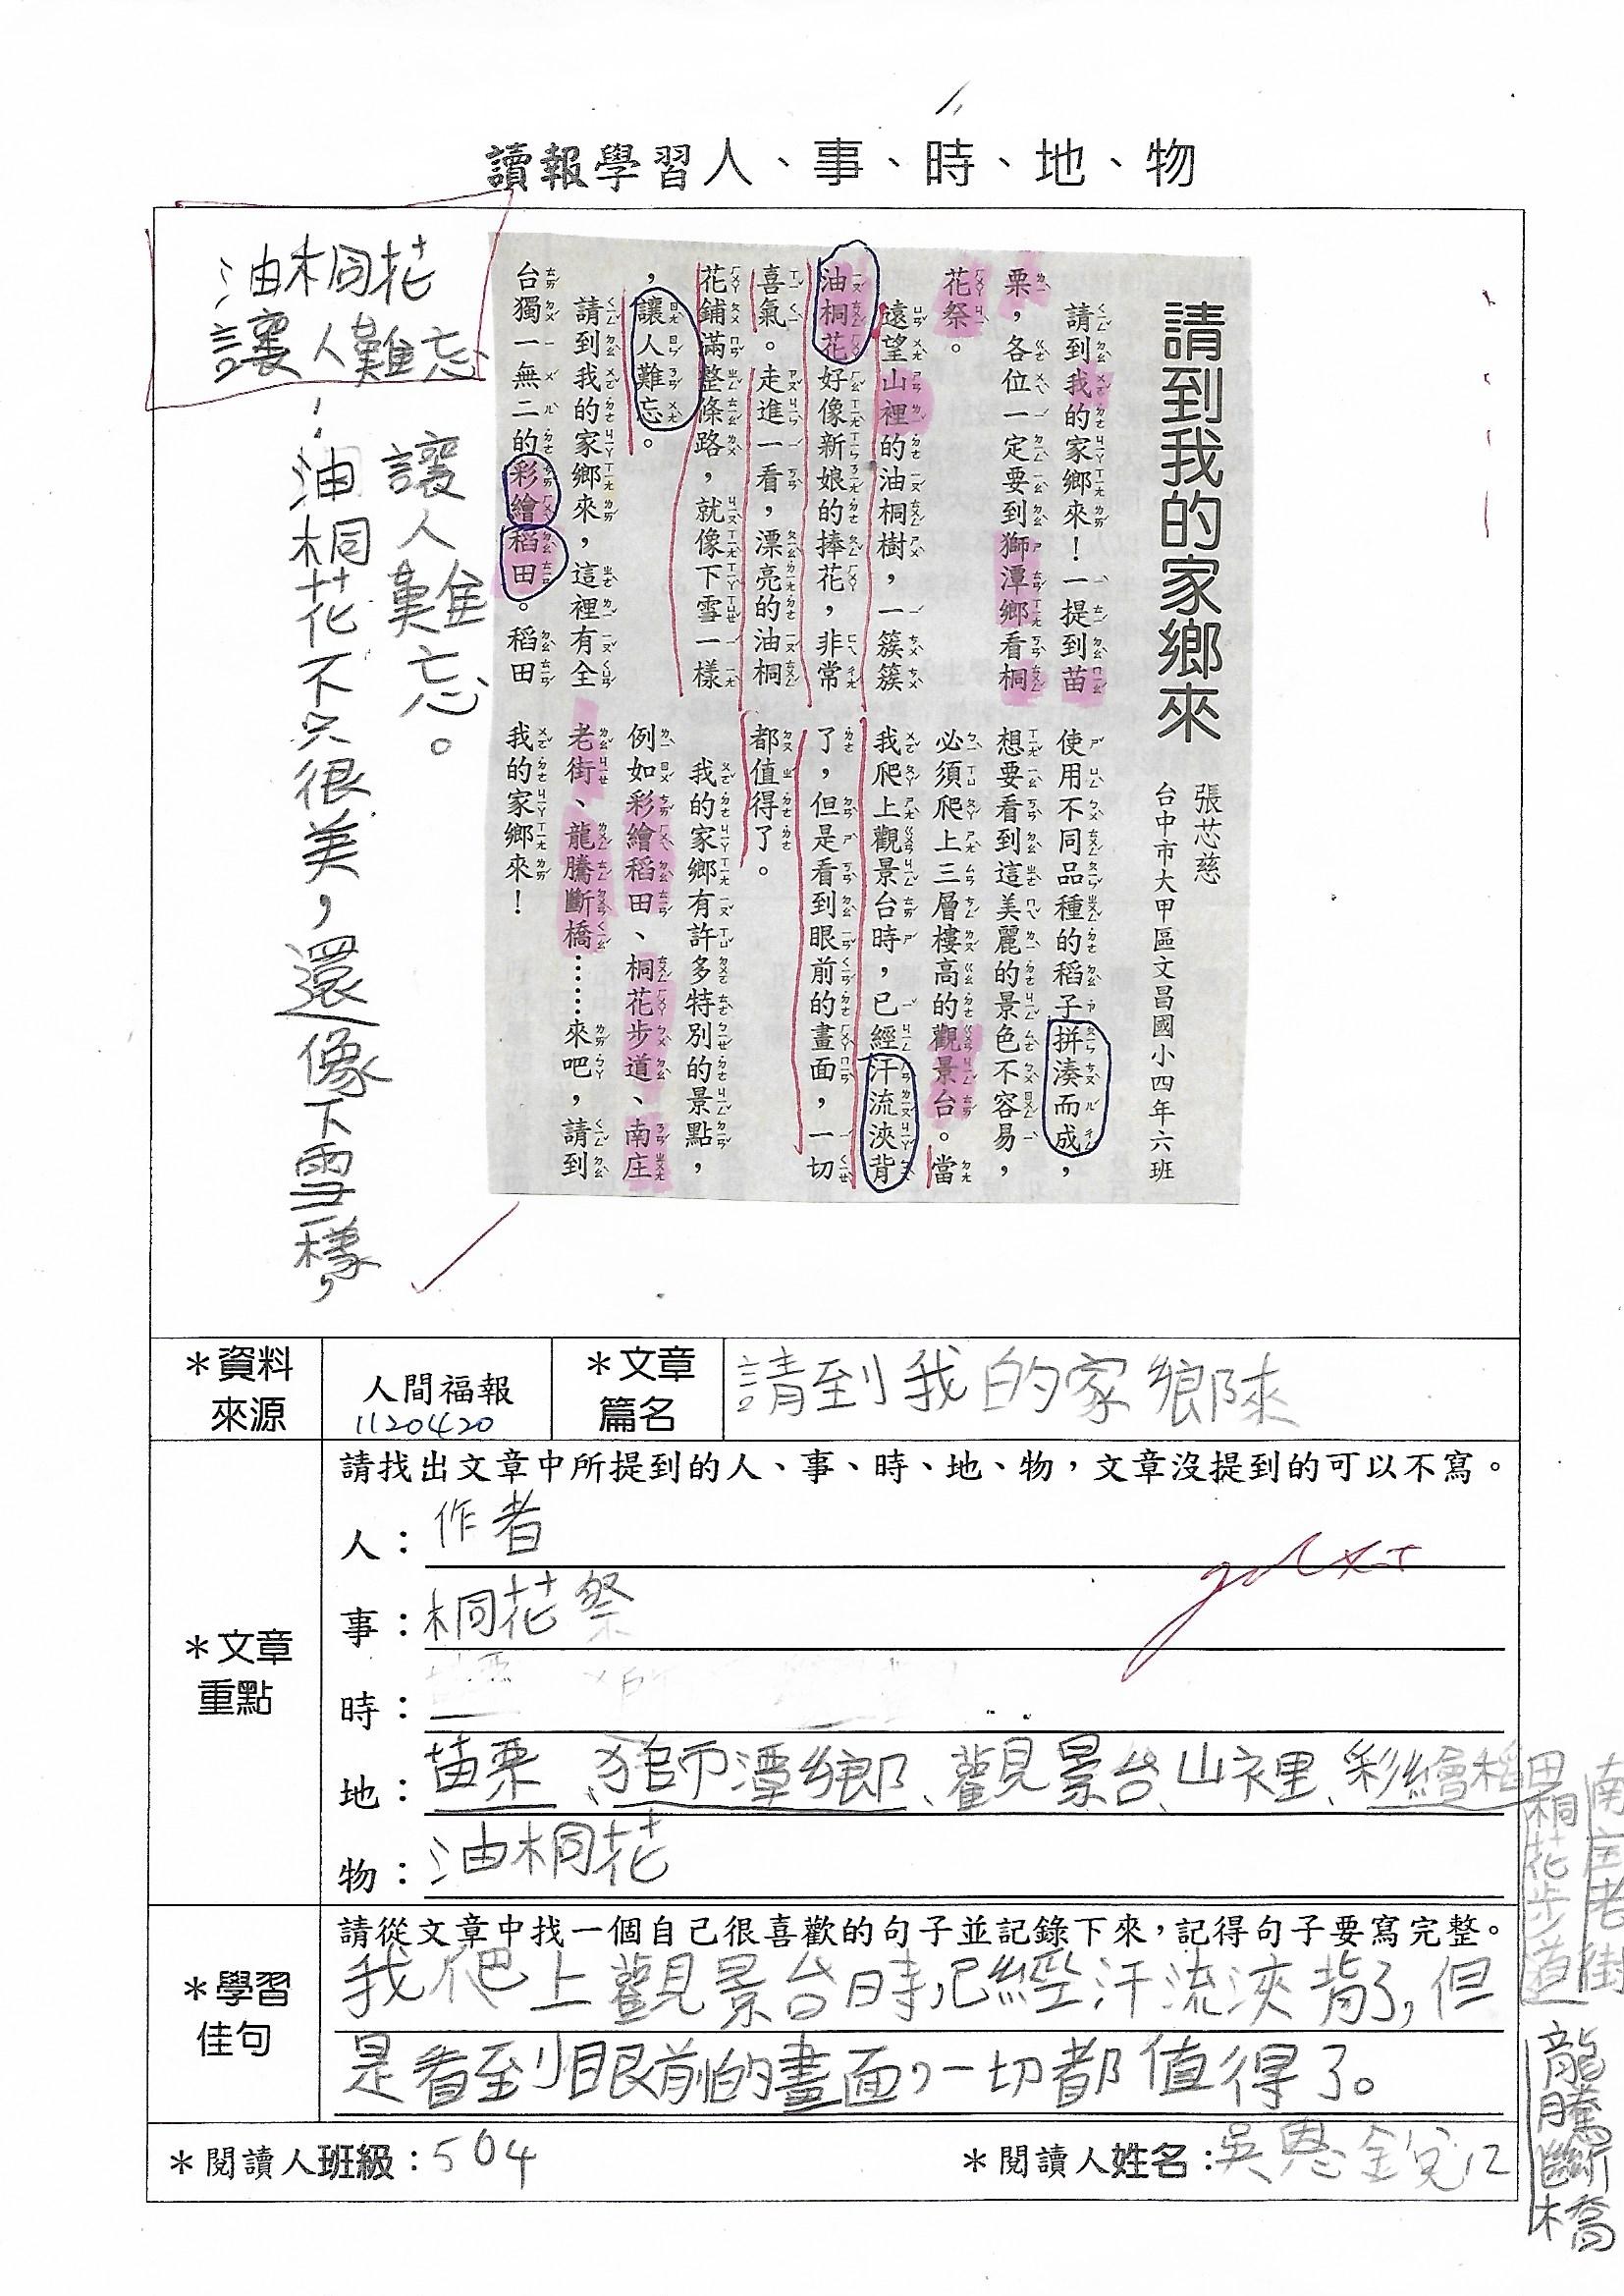 讀報學習人、事、時、地、物
油桐花
讓人難忘
油桐花不只很美，還像下雪一樣，
讓人難忘。
請到我的家鄉來
張芯慈
台中市大甲區文昌國小四年六班
請到我的家鄉來！一提到苗
栗，各位一定要到獅潭鄉看桐
花祭。
遠望山裡的油桐樹，一簇簇
油桐花好像新娘的捧花，非常
喜氣。走進一看，漂亮的油桐
花鋪滿整條路，就像下雪一樣
，讓人難忘。
請到我的家鄉來，這裡有全
台獨一無二的彩繪稻田。稻田
使用不同品種的稻子拼湊而成，
想要看到這美麗的景色不容易，
必須爬上三層樓高的觀景台。當
我爬上觀景台時，已經汗流浹背
了，但是看到眼前的畫面，一切
都值得了。
我的家鄉有許多特別的景點，
例如彩繪稻田、桐花步道、南庄
老街、龍騰斷橋……來吧，請到
我的家鄉來！
＊資料來源
人間福報
1120420
＊文章篇名
請到我的家鄉來
＊文章重點
請找出文章中所提到的人、事、時、地、物，文章沒提到的可以不寫。
人：作者
事：桐花祭
時：
地：苗栗、獅潭鄉、觀景台、山裡、彩繪稻田
桐花步道
南庄老街
龍騰斷橋
物：油桐花
＊學習佳句
請從文章中找一個自己很喜歡的句子並記錄下來，記得句子要寫完整。
我爬上觀景台時，已經汗流浹背了，但
是看到眼前的畫面，一切都值得了。
＊閱讀人班級：504
＊閱讀人姓名：吳恩銳12